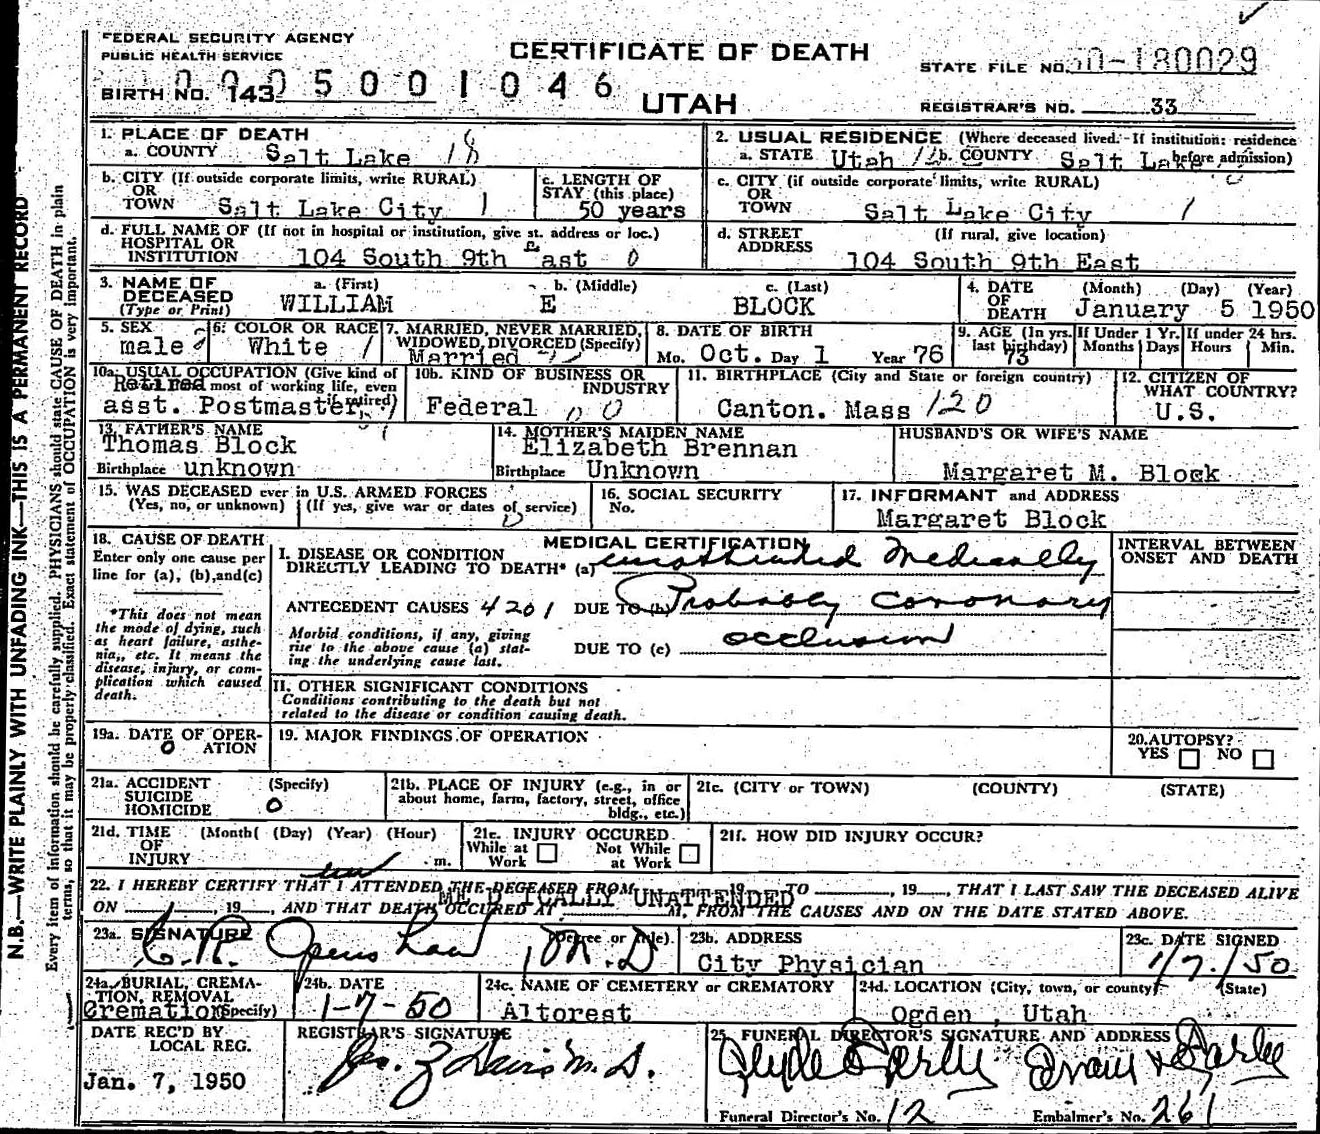 FEDERAL SECURITY AGENCY
PUBLIC HEALTH SERVICE
CERTIFICATE OF DEATH
STATE FILE NO. 50-180029
BIRTH NO. 143
0005001046
UTAH
REGISTRAR'S NO. 33
1. PLACE OF DEATH
a. COUNTY Salt Lake 18
2. USUAL RESIDENCE (Where deceased lived. If institution: residence before admission)
a. STATE Utah b. COUNTY Salt Lake
b. CITY (If outside corporate limits, write RURAL) OR TOWN Salt Lake City 1
c. LENGTH OF STAY (this place) 50 years
c. CITY (if outside corporate limits, write RURAL) OR TOWN Salt Lake City 1
d. FULL NAME OF (If not in hospital or institution, give st. address or loc.) HOSPITAL OR INSTITUTION 104 South 9th East 0
d. STREET ADDRESS (If rural, give location) 104 South 9th East
3. NAME OF DECEASED (Type or Print)
a. (First) WILLIAM
b. (Middle) E
c. (Last) BLOCK
4. DATE OF DEATH (Month) (Day) (Year) January 5 1950
5. SEX male
6. COLOR OR RACE White 1
7. MARRIED, NEVER MARRIED, WIDOWED, DIVORCED (Specify) Married
8. DATE OF BIRTH Mo. Oct. Day 1 Year 76
9. AGE (In yrs. last birthday) 73
If Under 1 Yr. Months Days
If under 24 hrs. Hours Min.
10a. USUAL OCCUPATION (Give kind of most of working life, even if retired) Retired asst. Postmaster
10b. KIND OF BUSINESS OR INDUSTRY Federal
11. BIRTHPLACE (City and State or foreign country) Canton. Mass 120
12. CITIZEN OF WHAT COUNTRY? U.S.
13. FATHER'S NAME Thomas Block
Birthplace unknown
14. MOTHER'S MAIDEN NAME Elizabeth Brennan
Birthplace Unknown
HUSBAND'S OR WIFE'S NAME
Margaret M. Block
15. WAS DECEASED ever in U.S. ARMED FORCES
(Yes, no, or unknown) (If yes, give war or dates of service)
16. SOCIAL SECURITY No.
17. INFORMANT and ADDRESS
Margaret Block
18. CAUSE OF DEATH
Enter only one cause per line for (a), (b), and (c)
*This does not mean the mode of dying, such as heart failure, asthenia,, etc. It means the disease, injury, or complication which caused death.
MEDICAL CERTIFICATION
INTERVAL BETWEEN ONSET AND DEATH
I. DISEASE OR CONDITION DIRECTLY LEADING TO DEATH* (a) unattended Medically
ANTECEDENT CAUSES 4201 DUE TO (b) Probably coronary
Morbid conditions, if any, giving rise to the above cause (a) stating the underlying cause last.
DUE TO (c) occlusion
II. OTHER SIGNIFICANT CONDITIONS
Conditions contributing to the death but not related to the disease or condition causing death.
19a. DATE OF OPERATION 0
19. MAJOR FINDINGS OF OPERATION
20. AUTOPSY? YES NO
21a. ACCIDENT SUICIDE HOMICIDE (Specify) 0
21b. PLACE OF INJURY (e.g., in or about home, farm, factory, street, office bldg., etc.)
21c. (CITY or TOWN) (COUNTY) (STATE)
21d. TIME OF INJURY (Month( (Day) (Year) (Hour) m.
21e. INJURY OCCURED While at Work Not While at Work
21f. HOW DID INJURY OCCUR?
22. I HEREBY CERTIFY THAT I ATTENDED THE DECEASED FROM 19 TO , 19 , THAT I LAST SAW THE DECEASED ALIVE
MEDICALLY UNATTENDED
ON , 19 , AND THAT DEATH OCCURED AT M, FROM THE CAUSES AND ON THE DATE STATED ABOVE.
23a. SIGNATURE (Degree or title). C.R. Openshaw, M.D
23b. ADDRESS City Physician
23c. DATE SIGNED 1/7/50
24a. BURIAL, CREMATION, REMOVAL (Specify) Cremation
24b. DATE 1-7-50
24c. NAME OF CEMETERY or CREMATORY Altorest
24d. LOCATION (City, town, or county) (State) Ogden, Utah
DATE REC'D BY LOCAL REG.
Jan. 7, 1950
REGISTRAR'S SIGNATURE
M.D.
25. FUNERAL DIRECTOR'S SIGNATURE AND ADDRESS
Funeral Director's No. 12
Embalmer's No. 261
N.B.—WRITE PLAINLY WITH UNFADING INK—THIS IS A PERMANENT RECORD
Every item of information should be carefully supplied. PHYSICIANS should state CAUSE OF DEATH in plain
terms, so that it may be properly classified. Exact statement of OCCUPATION is very important.